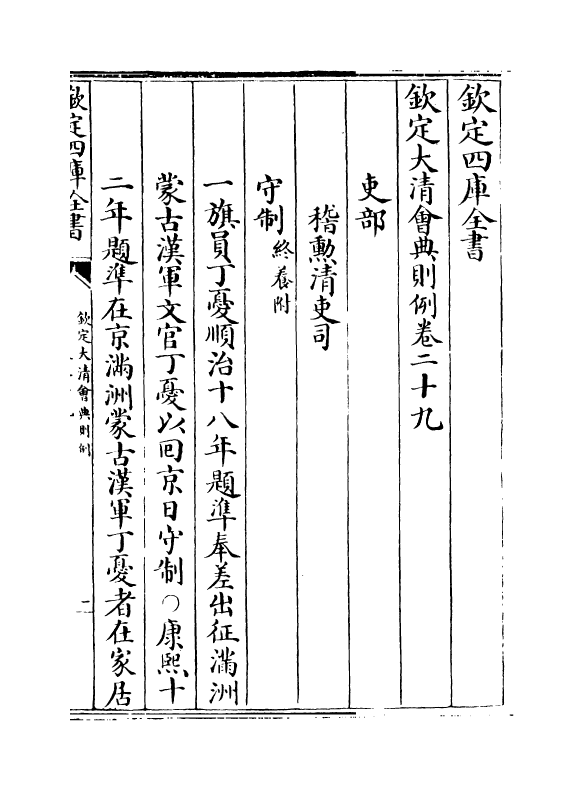 欽定四庫全書
欽定大清會典則例卷二十九
吏部
稽勲清吏司
守制終養附
一旗員丁憂順治十八年題準奉差出征滿洲
蒙古漢軍文官丁憂以回京日守制○康熙十
二年題準在京滿洲蒙古漢軍丁憂者在家居
欽定四庫全書
欽定大清會典則例